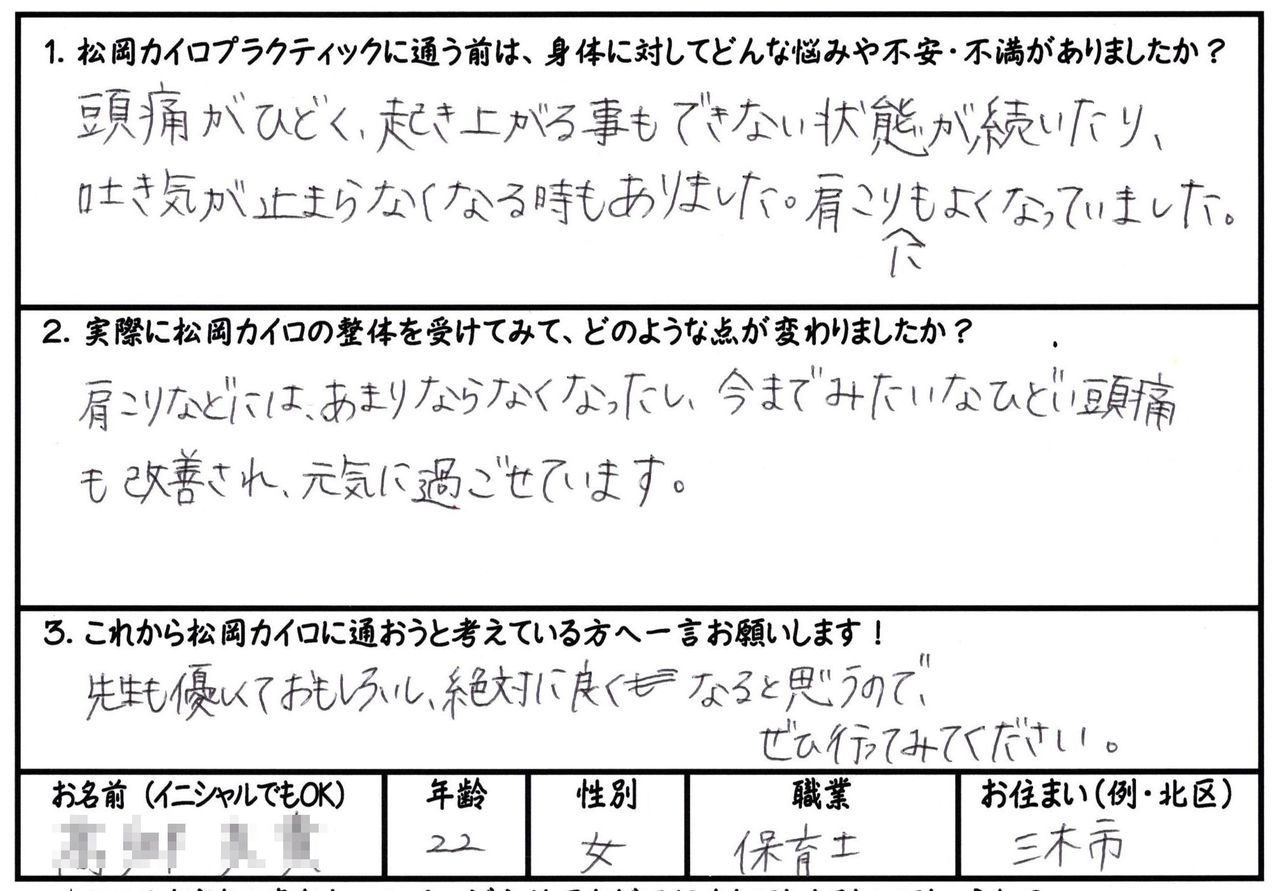 1. 松岡カイロプラクティックに通う前は、身体に対してどんな悩みや不安・不満がありましたか？
頭痛がひどく、起き上がる事もできない状態が続いたり、
吐き気が止まらなくなる時もありました。肩こりにもよくなっていました。
2. 実際に松岡カイロの整体を受けてみて、どのような点が変わりましたか？
肩こりなどには、あまりならなくなったし、今までみたいなひどい頭痛
も改善され、元気に過ごせています。
3. これから松岡カイロに通おうと考えている方へ一言お願いします！
先生も優しくておもしろいし、絶対に良くなると思うので、
ぜひ行ってみてください。
お名前（イニシャルでもOK） 年齢 性別 職業 お住まい（例・北区）
22 女 保育士 三木市